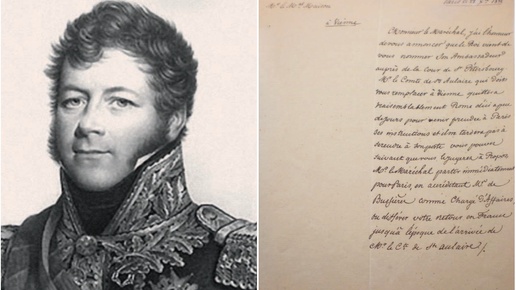 à Vienne
Monsieur le Maréchal, j'ai l'honneur
de vous annoncer que le Roi vient de
vous nommer Son Ambassadeur
auprès de la cour de St Petersbourg
Mr le Comte de Ste Aulaire qui doit
vous remplacer à Vienne quittera
vraisemblablement Rome
de jours pour venir prendre à Paris
des instructions et il ne tardera pas à
se rendre à vous pouvez
suivant que vous le jugerez à Propos
Mr le Maréchal partir immédiatement
pour Paris, en accréditant Mr de
Bussierre comme Chargé d'Affaires
ou différer votre retour en France
jusqu'à l'époque de l'arrivée de
Mr le Cte de Ste Aulaire